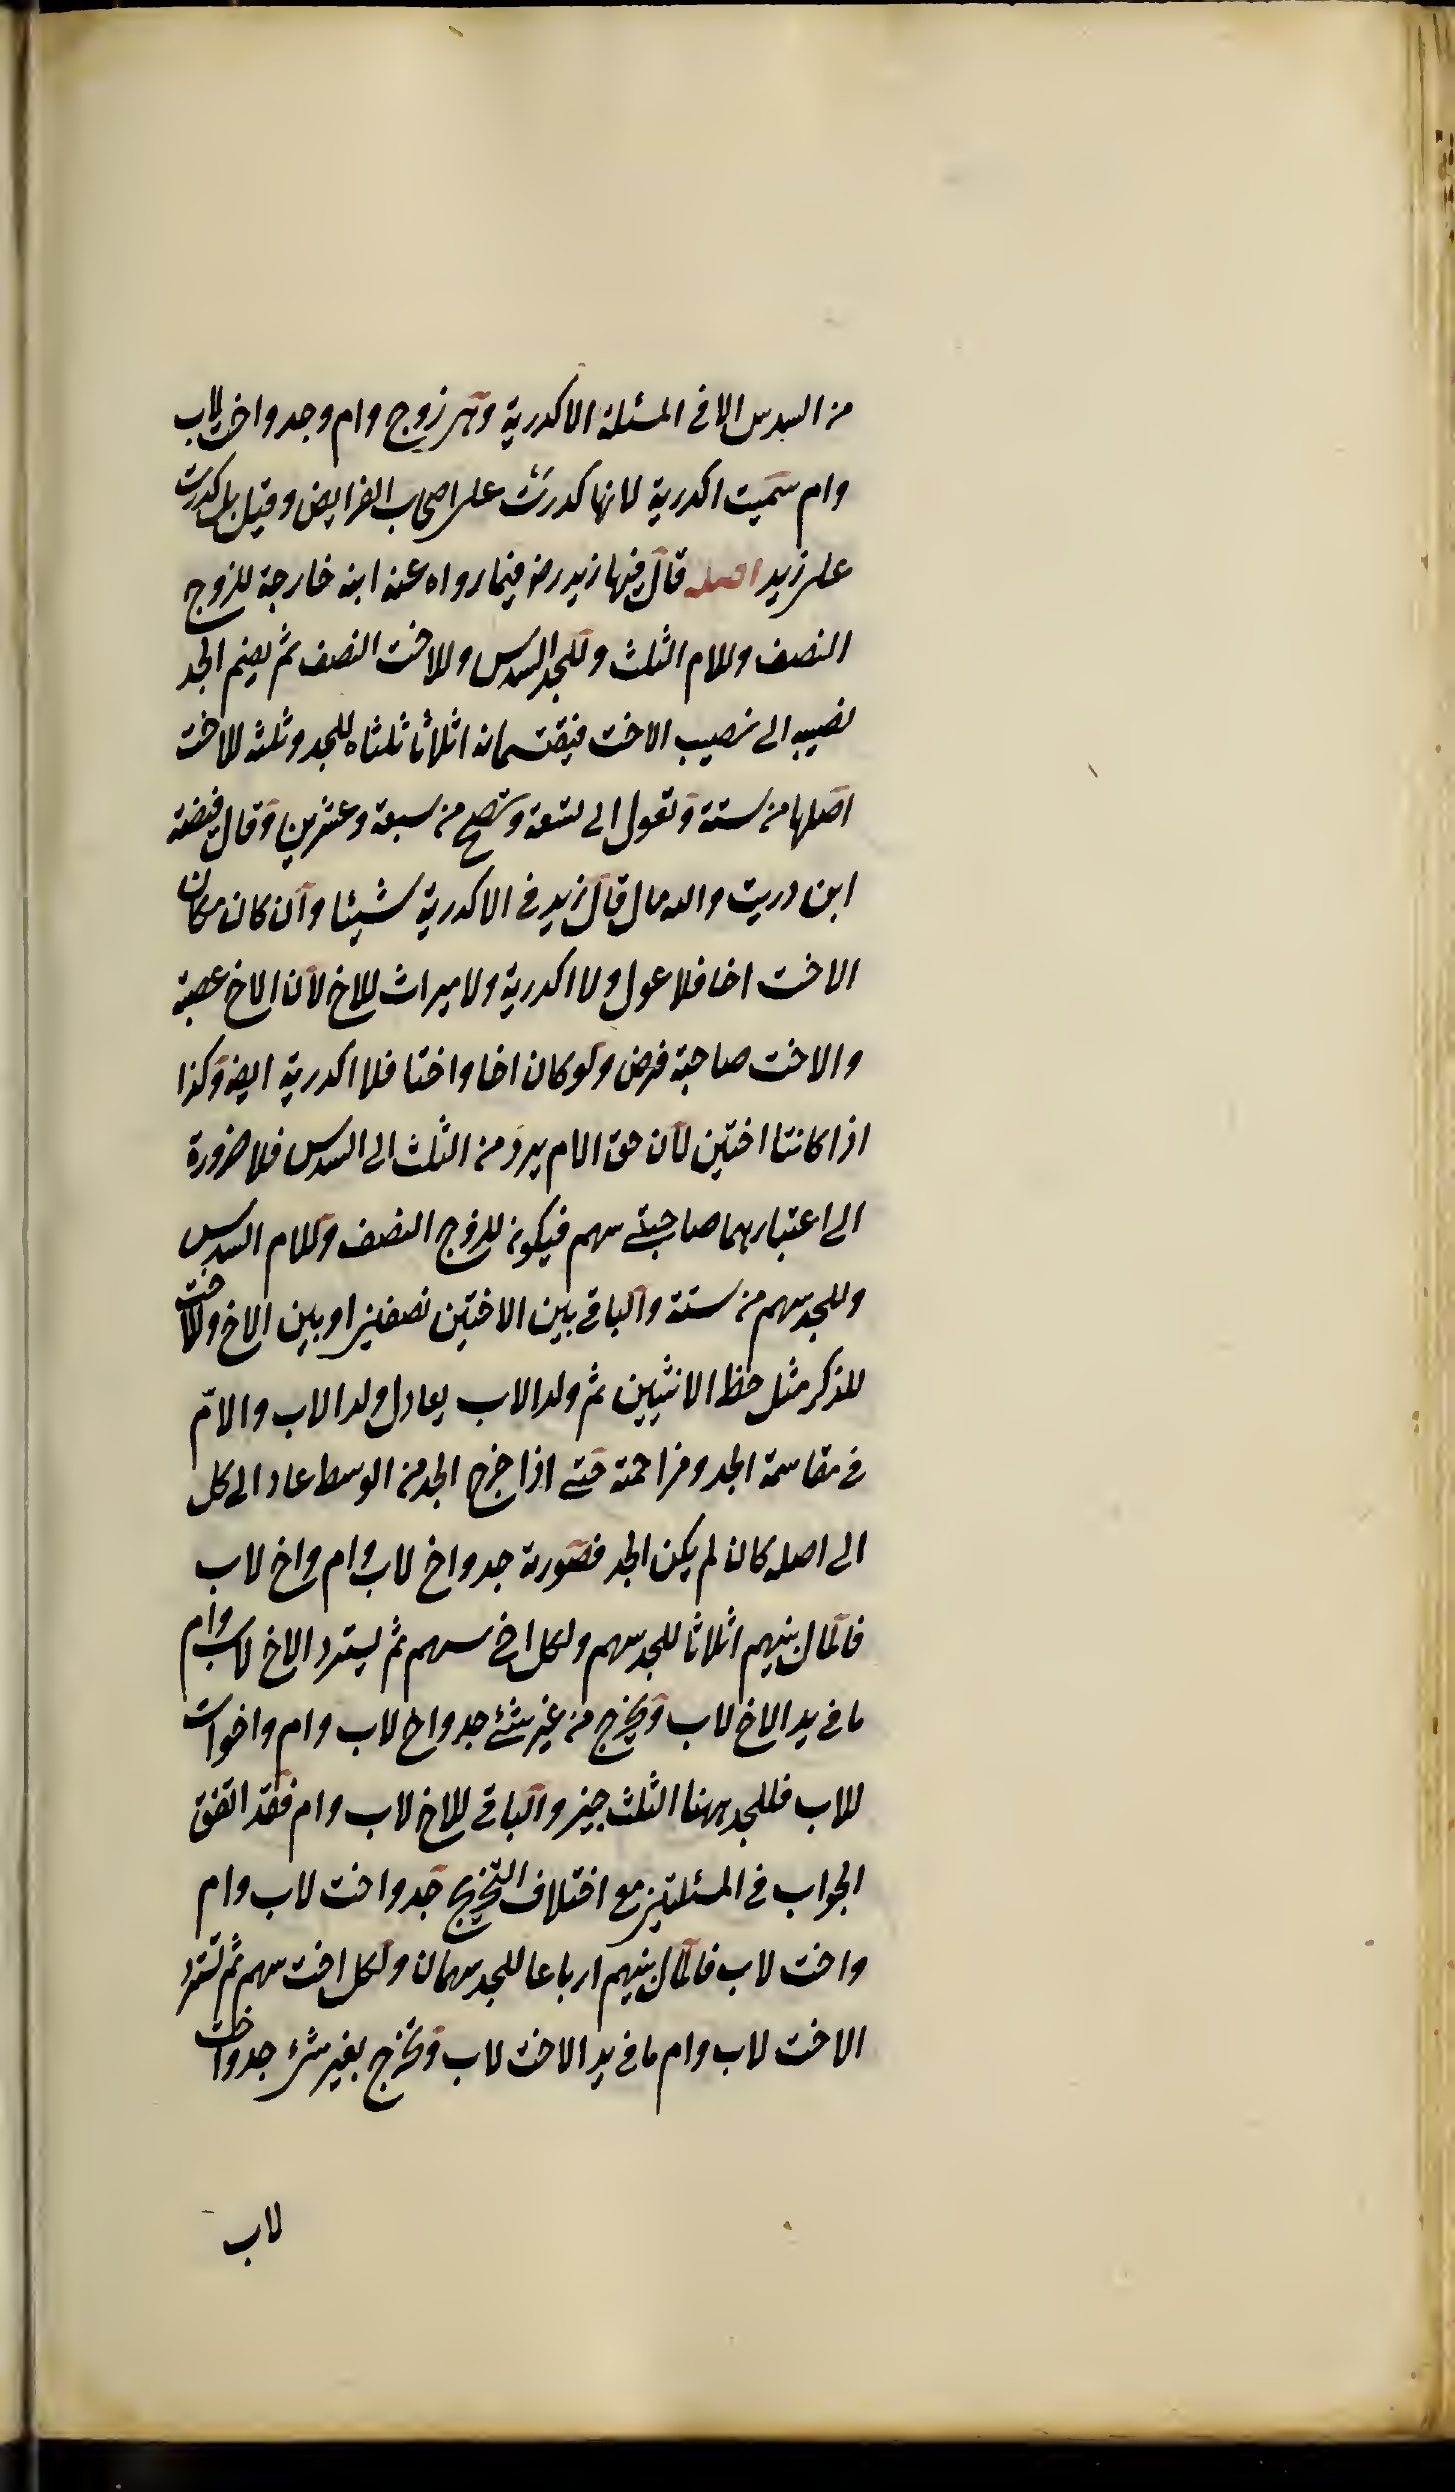 من السدس الا في المسئلة الاكدرية وهى زوج وام وجد واخت لاب
وام سميت اكدرية لانها كدرت على اصحاب الفرايض وقيل بل كدرت
على زيد اصله قال فيها زيد رض فيما رواه عنه ابنه خارجة للزوج
النصف وللام الثلث وللجد السدس وللاخت النصف ثم يضم الجد
نصيبه الى نصيب الاخت فيقتسمانه اثلاثا ثلثاه للجد وثلثه للاخت
اصلها من ستة وتعول الى تسعة وتصح من سبعة وعشرين وقال قبيضة
ابن دريت والله مال قال زيد في الاكدرية شيئا وان كان مكان
الاخت اخا فلا عول ولا اكدرية ولا ميراث للاخ لان الاخ عصبة
والاخت صاحبة فرض ولو كان اخا واختا فلا اكدرية ايض وكذا
اذا كانتا اختين لان حق الام يرد من الثلث الى السدس فلا ضرورة
الى اعتبارهما صاحبتى سهم فيكون للزوج النصف وللام السدس
وللجد سهم من ستة والباقي بين الاختين نصفين او بين الاخ والاخت
للذكر مثل حظ الانثيين ثم ولد الاب يعادل ولد الاب والام
في مقاسمة الجد ومزاحمة حتى اذا خرج الجد من الوسط عاد الى كل
الى اصله كان لم يكن الجد فصورته جد واخ لاب وام واخ لاب
فالمال بينهم اثلاثا للجد سهم ولكل اخ سهم ثم يسترد الاخ لاب وام
ما في يد الاخ لاب ويخرج من غير شئ جد واخ لاب وام واخوات
للاب فللجد ههنا الثلث خير والباقي للاخ لاب وام فقد اتفق
الجواب في المسئلتين مع اختلاف التخريج جد واخت لاب وام
واخت لاب فالمال بينهم ارباعا للجد سهمان ولكل اخت سهم ثم تسترد
الاخت لاب وام ما في يد الاخت لاب وتخرج بغير شئ جد واخت
لاب